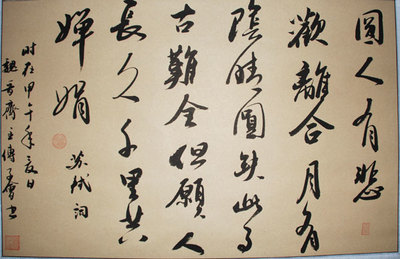 圓人有悲
歡離合月有
陰晴圓缺此事
古難全但願人
長久千里共
嬋娟
苏軾詞
时在甲午年夏日
齋主傅